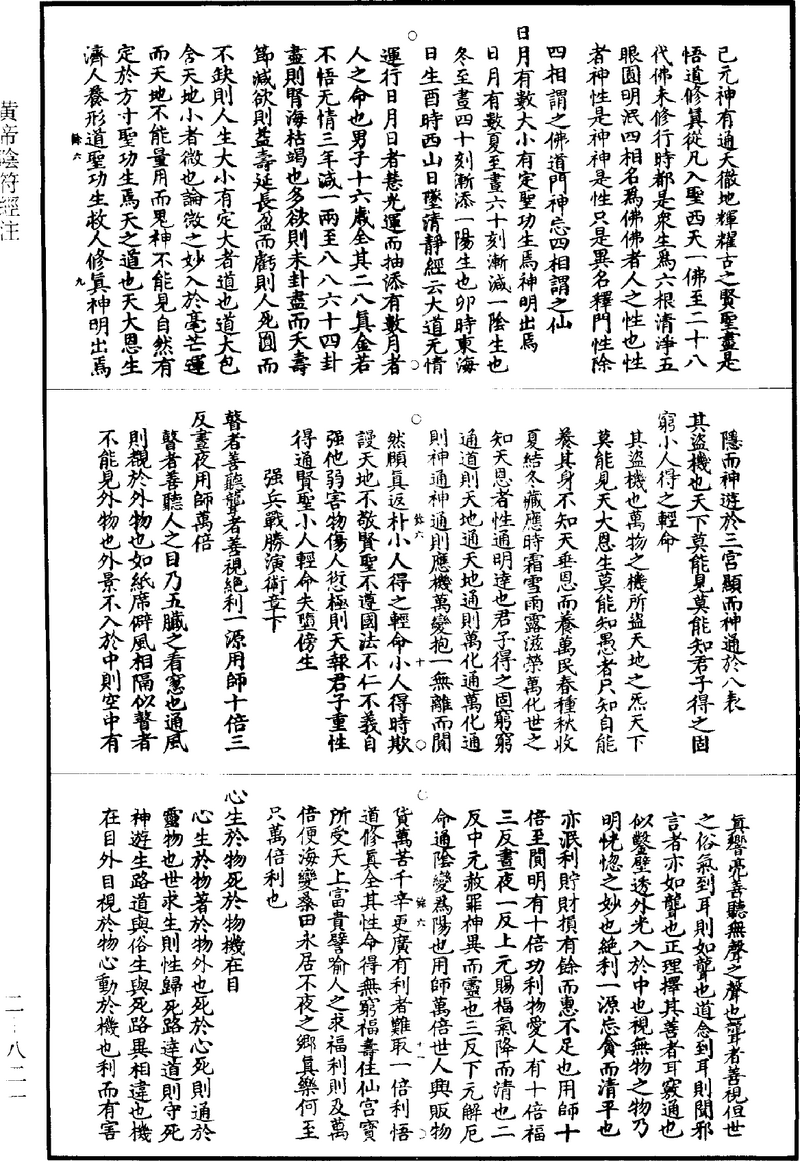 黃帝陰符經注
二‐八二一
己元神有通天徹地輝耀古之賢聖盡是
悟道修真從凡入聖西天一佛至二十八
代佛未修行時都是衆生爲六根清淨五
眼圓明泯四相名爲佛佛者人之性也性
者神性是神神是性只是異名釋門性除
四相謂之佛道門神忘四相謂之仙
日月有數大小有定聖功生焉神明出焉
日月有數夏至晝六十刻漸減一陰生也
冬至晝四十刻漸添一陽生也卯時東海
日生酉時西山日墜清靜經云大道无情
運行日月日者慧光運而抽添有數月者
人之命也男子十六歲全其二八真金若
不悟无情三年減一兩至八八六十四卦
盡則腎海枯竭也多欲則未卦盡而夭壽
節減欲則益壽延長盈而虧則人死圓而
不缺則人生大小有定大者道也道大包
含天地小者微也論微之妙入於毫芒運
而天地不能量用而鬼神不能見自然有
定於方寸聖功生焉天之道也天大恩生
濟人養形道聖功生救人修真神明出焉
餘六 九
隱而神遊於三宮顯而神通於八表
其盜機也天下莫能見莫能知君子得之固
窮小人得之輕命
其盜機也萬物之機所盜天地之炁天下
莫能見天大恩生莫能知愚者只知自能
養其身不知天垂恩而養萬民春種秋收
夏結冬藏應時霜雪雨露滋榮萬化世之
知天恩者性通明達也君子得之固窮窮
通道則天地通天地通則萬化通萬化通
則神通神通則應機萬變抱一無離而閴
然頤真返朴小人得之輕命小人得時欺
餘六 十
謾天地不敬賢聖不遵國法不仁不義自
强他弱害物傷人愆極則天報君子重性
得通賢聖小人輕命失墮傍生
强兵戰勝演術章下
瞽者善聽聾者善視絕利一源用師十倍三
反晝夜用師萬倍
瞽者善聽人之目乃五臟之看窻也通風
則觀於外物也如紙席僻風相隔似瞽者
不能見外物也外景不入於中則空中有
真響亮善聽無聲之聲也聾者善視但世
之俗氣到耳則如聾也道念到耳則聞邪
言者亦如聾也正理擇其善者耳竅通也
似鑿壁透外光入於中也視無物之物乃
明恍惚之妙也絕利一源忘貪而清平也
亦泯利貯財損有餘而惠不足也用師十
倍至閴明有十倍功利物愛人有十倍福
三反晝夜一反上元賜福氣降而清也二
反中元赦罪神異而靈也三反下元解厄
命通陰變爲陽也用師萬倍世人興販物
貨萬苦千辛更廣有利者難取一倍利悟
餘六 十一
道修真全其性命得無窮福壽住仙宮寶
所受天上富貴譬喻人之求福利則及萬
倍便海變桑田永居不夜之鄉真樂何至
只萬倍利也
心生於物死於物機在目
心生於物著於物外也死於心死則通於
靈物也世求生則性歸死路達道則守死
神遊生路道與俗生與死路異相違也機
在目外目視於物心動於機也利而有害